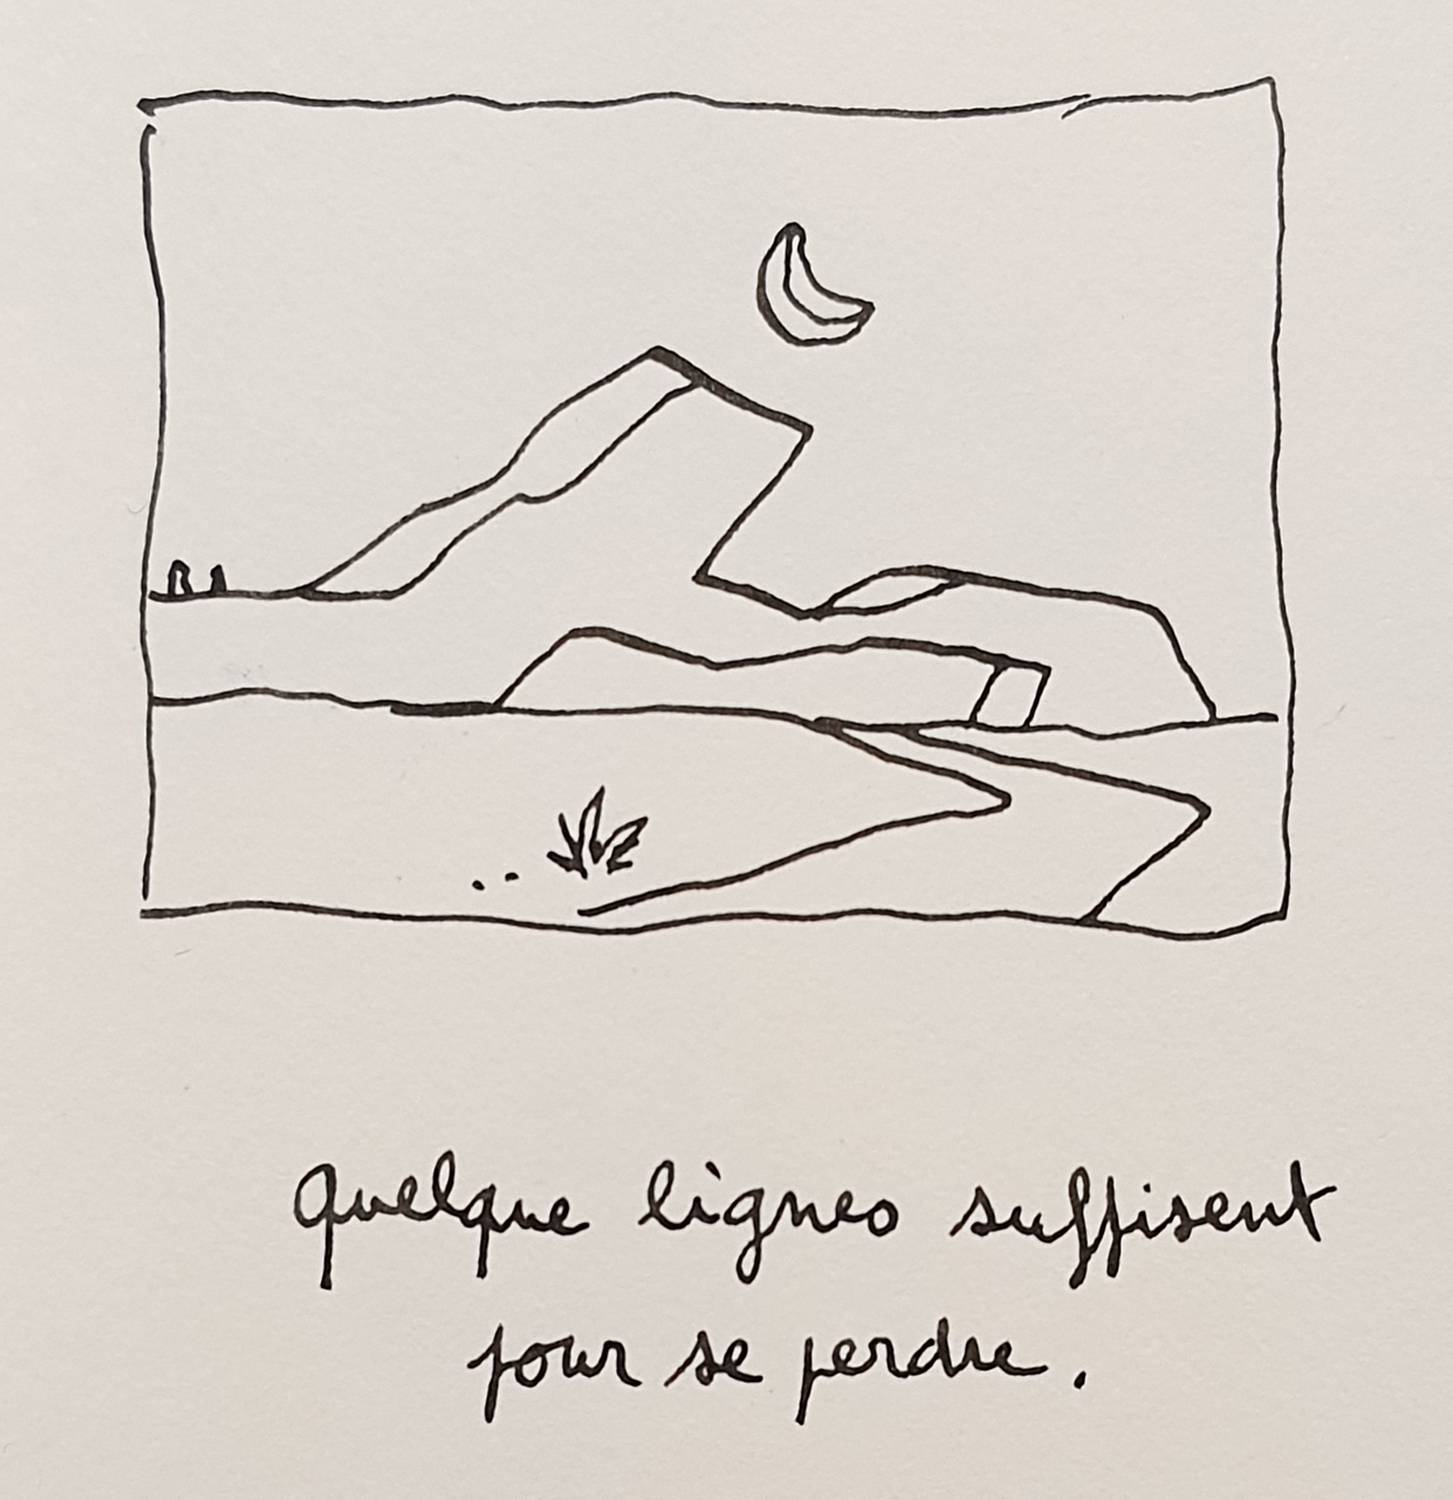 Quelque lignes suffisent
pour se perdre.